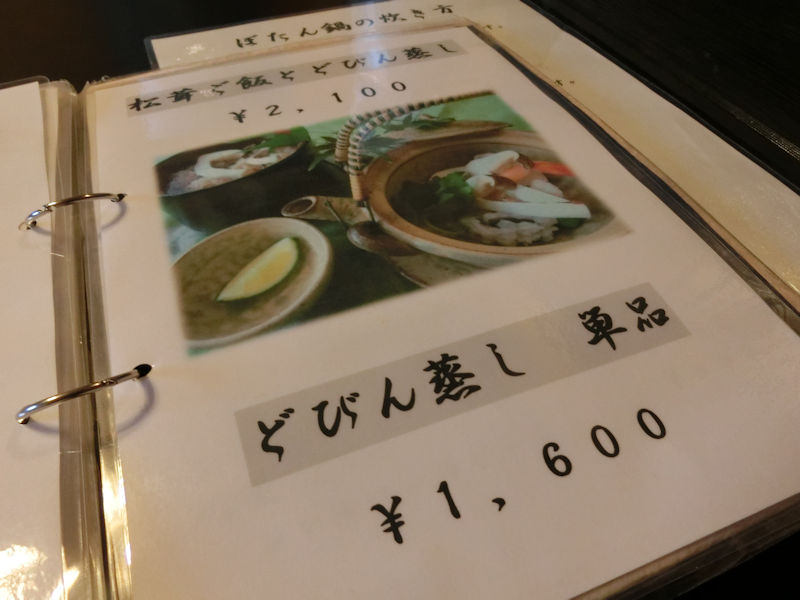 ぼたん鍋の炊き方
松茸ご飯とどびん蒸し
¥2,100
どびん蒸し 単品
¥1,600